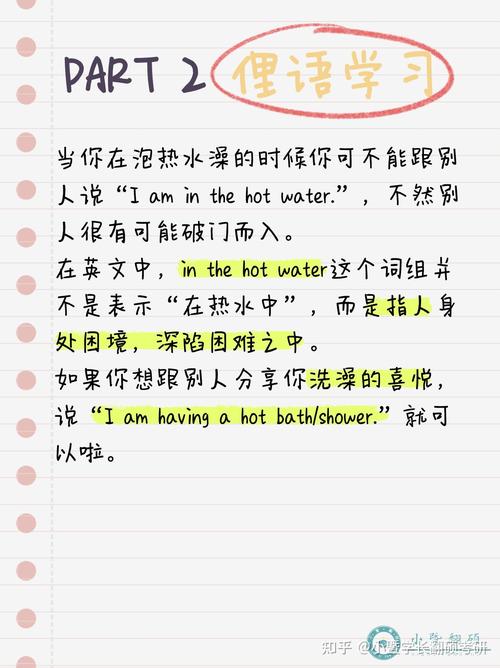 PART 2 俚语学习
当你在泡热水澡的时候你可不能跟别
人说“I am in the hot water.”，不然别
人很有可能破门而入。
在英文中，in the hot water这个词组并
不是表示“在热水中”，而是指人身
处困境，深陷困难之中。
如果你想跟别人分享你洗澡的喜悦，
说“I am having a hot bath/shower.”就可
以啦。
小暨翻硕
知乎 @小暨学长翻硕考研